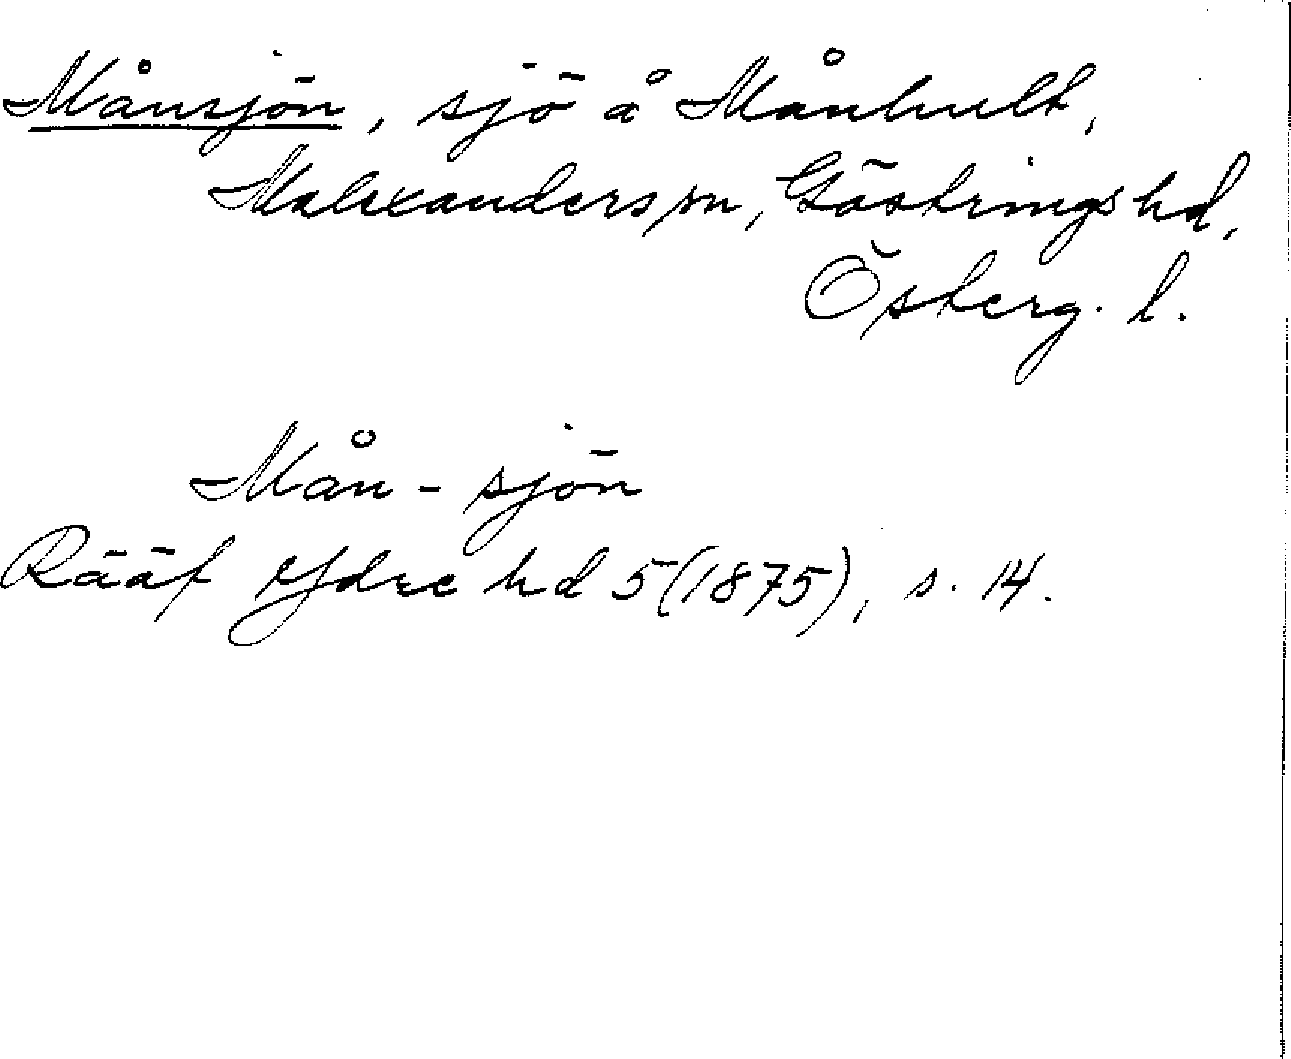 Månsjön, sjö å Månhult,
Malexanders sn, Göstrings hd,
Österg. l.
Mån-sjön
Rääf Ydre hd 5(1875), s. 14.